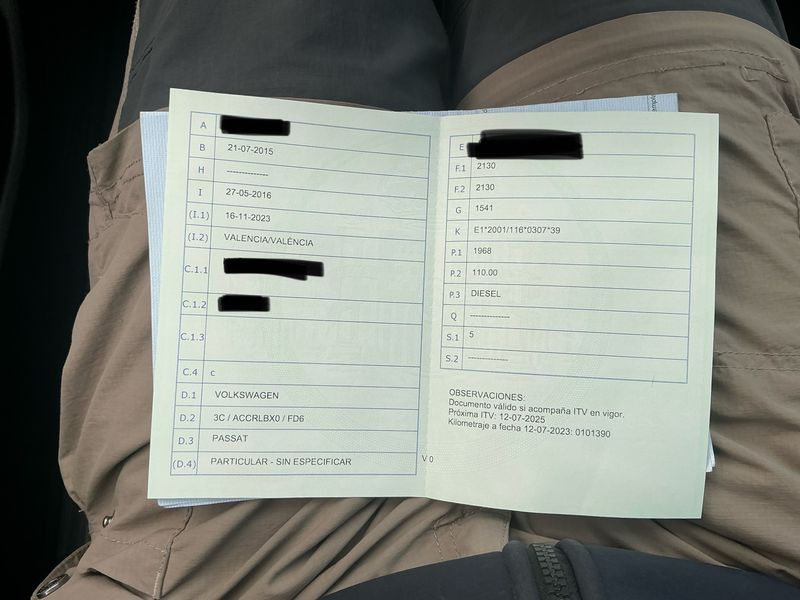 A
B 21-07-2015
H --------------
I 27-05-2016
(I.1) 16-11-2023
(I.2) VALENCIA/VALÈNCIA
C.1.1
C.1.2
C.1.3
C.4 c
D.1 VOLKSWAGEN
D.2 3C / ACCRLBX0 / FD6
D.3 PASSAT
(D.4) PARTICULAR - SIN ESPECIFICAR
V 0
E
F.1 2130
F.2 2130
G 1541
K E1*2001/116*0307*39
P.1 1968
P.2 110.00
P.3 DIESEL
Q --------------
S.1 5
S.2 --------------
OBSERVACIONES:
Documento válido si acompaña ITV en vigor.
Próxima ITV: 12-07-2025
Kilometraje a fecha 12-07-2023: 0101390